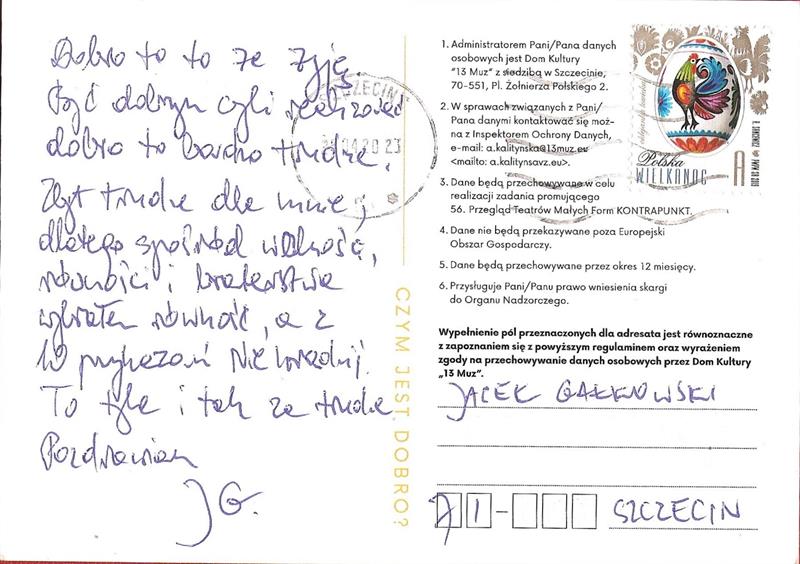 Dobro to to że żyję
Być dobrym czyli realizować
dobro to bardzo trudne.
Zbyt trudne dla mnie,
dlatego spośród wolności,
równości i braterstwa
wybrałem równość, a z
10 przykazań Nie kradnij.
To tyle i tak za trudne
Pozdrawiam
JG.
CZYM JEST DOBRO?
SZCZECIN
.04.20 23
1. Administratorem Pani/Pana danych
osobowych jest Dom Kultury
"13 Muz" z siedzibą w Szczecinie,
70-551, Pl. Żołnierza Polskiego 2.
2. W sprawach związanych z Pani/
Pana danymi kontaktować się moż-
na z Inspektorem Ochrony Danych,
e-mail: a.kalitynska@13muz.eu
<mailto: a.kalitynsavz.eu>.
3. Dane będą przechowywane w celu
realizacji zadania promującego
56. Przegląd Teatrów Małych Form KONTRAPUNKT.
4. Dane nie będą przekazywane poza Europejski
Obszar Gospodarczy.
5. Dane będą przechowywane przez okres 12 miesięcy.
6. Przysługuje Pani/Panu prawo wniesienia skargi
do Organu Nadzorczego.
Wypełnienie pól przeznaczonych dla adresata jest równoznaczne
z zapoznaniem się z powyższym regulaminem oraz wyrażeniem
zgody na przechowywanie danych osobowych przez Dom Kultury
„13 Muz".
Polska
WIELKANOC A
JACEK GAŁKOWSKI
71- SZCZECIN